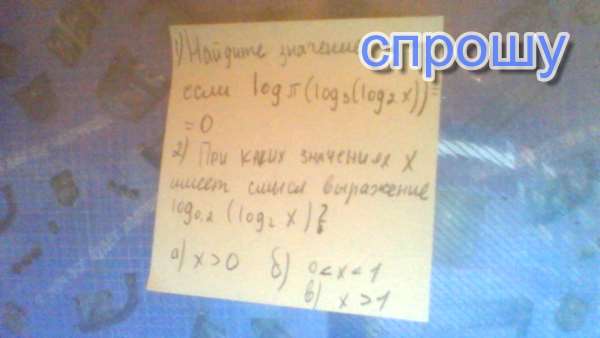 1) Найдите значение
спрошу
если log π (log₃(log₂ x)) =
= 0
2) При каких значениях x
имеет смысл выражение
log₀,₂ (log₂ x)?
а) x > 0 б) 0 < x < 1
в) x > 1